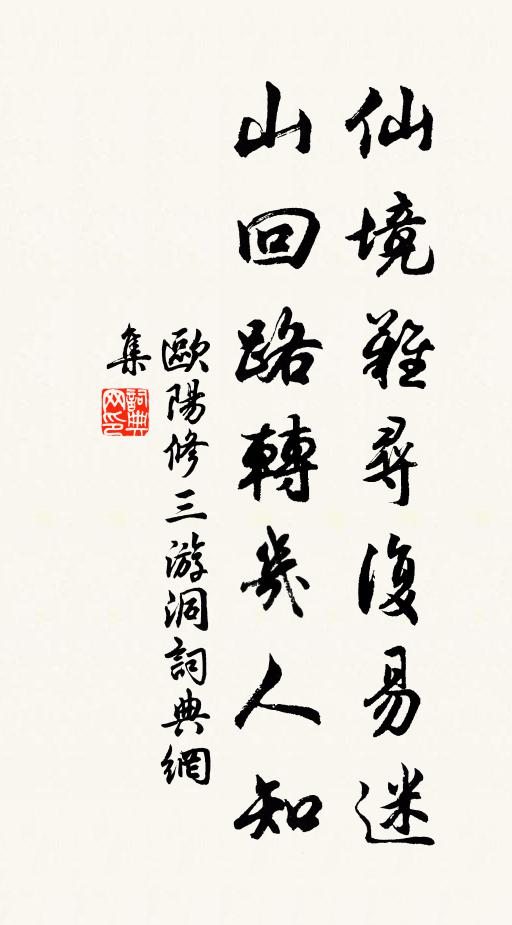 仙境難尋復易迷
山回路轉幾人知
歐陽修三游洞詞典網
集
詞典
网印